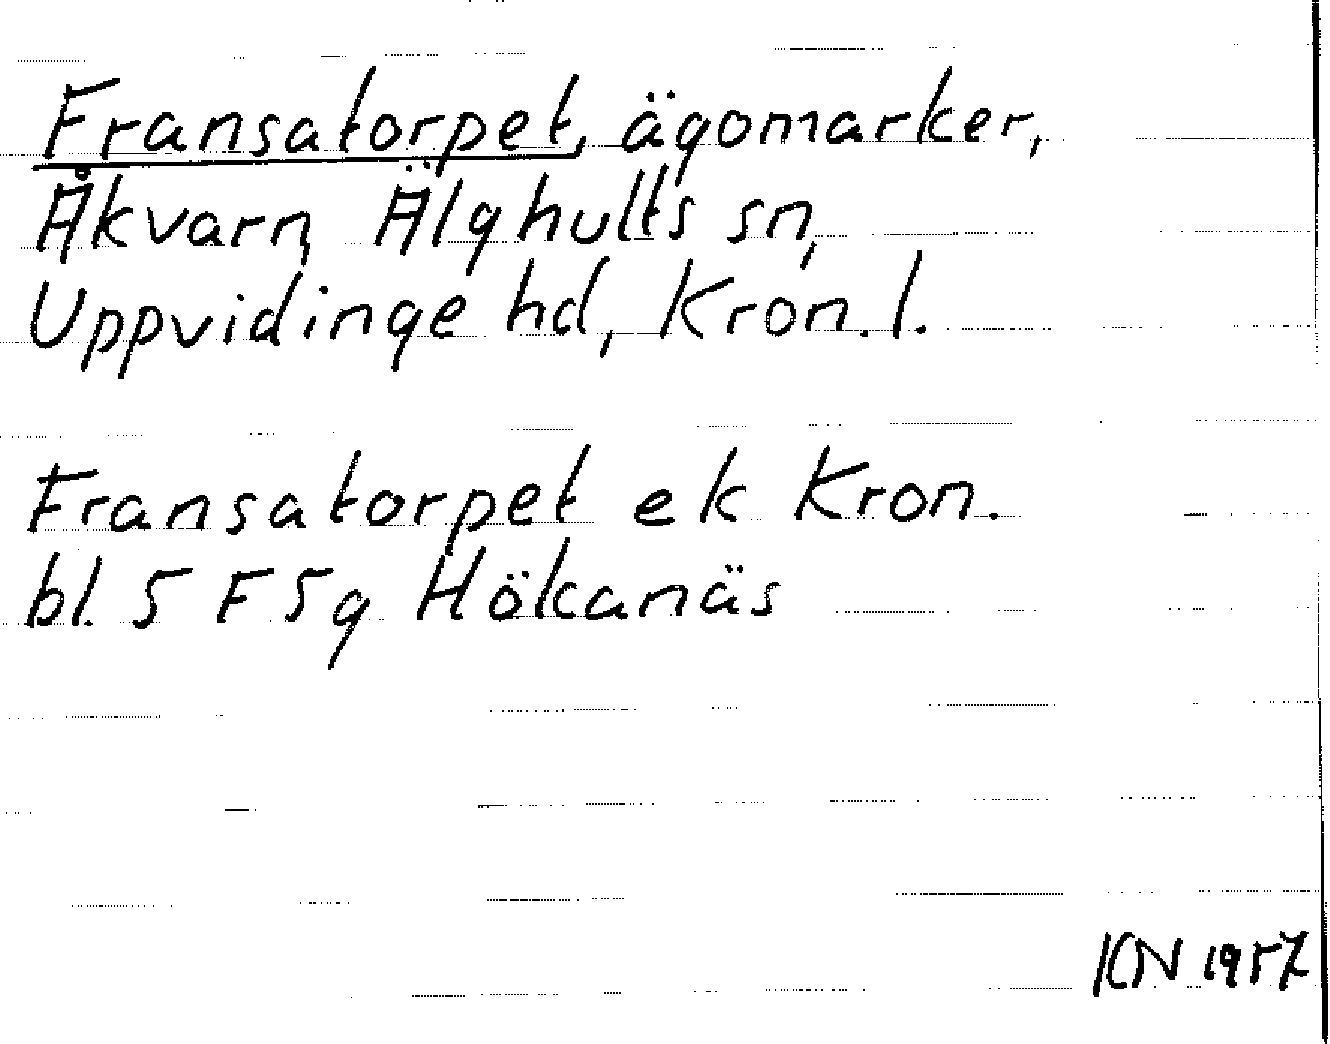 Fransatorpet, ägomarker,
Åkvarn, Älghults sn,
Uppvidinge hd, Kron. l.
Fransatorpet ek Kron.
bl. 5 F 5g Hökanäs
KN 1957